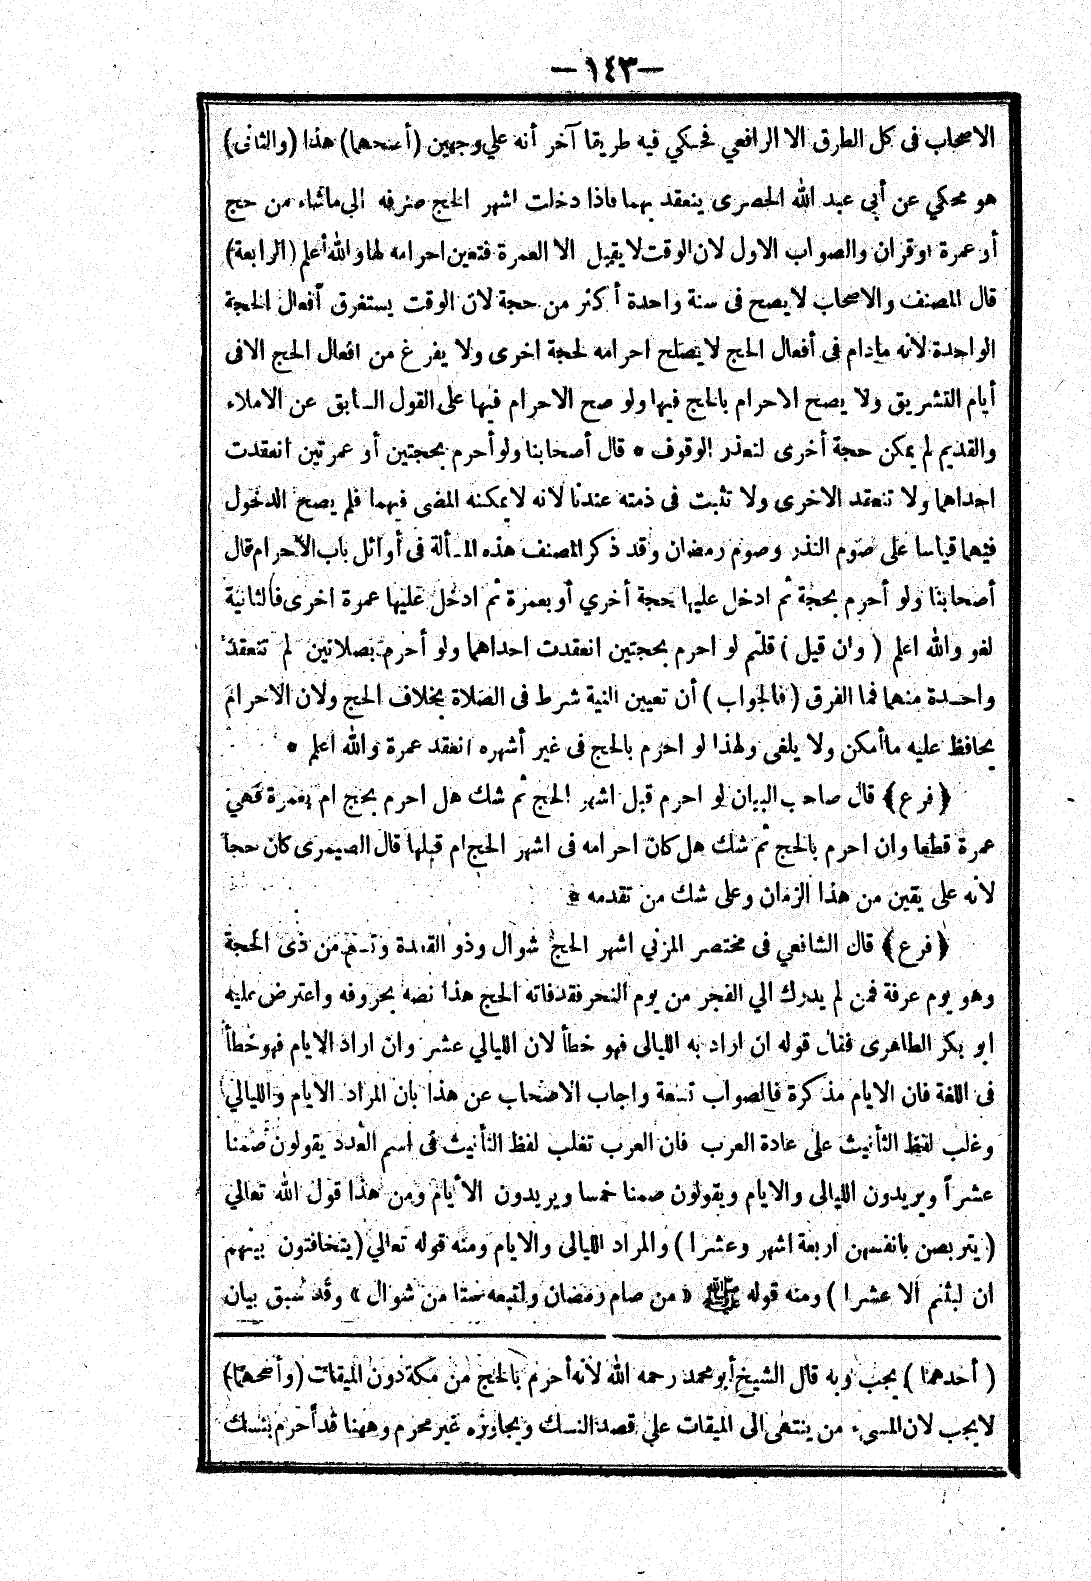 —١٤٣—
الاصحاب فى كل الطرق الا الرافعي فحكي فيه طريقا آخر أنه علي وجهين (أصحهما) هذا (والثانى)
هو محكي عن أبي عبد الله الخضرى ينعقد بهما فاذا دخلت اشهر الحج صرفه الى ماشاء من حج
أو عمرة اوقران والصواب الاول لان الوقت لا يقبل الا العمرة فتعين احرامه لها والله أعلم (الرابعة)
قال المصنف والاصحاب لايصح فى سنة واحدة أكثر من حجة لان الوقت يستغرق أفعال الحجة
الواحدة لانه مادام فى أفعال الحج لايصلح احرامه لحجة اخرى ولا يفرغ من افعال الحج الافى
أيام التشريق ولا يصح الاحرام بالحج فيها ولو صح الاحرام فيها على القول السابق عن الاملاء
والقديم لم يمكن حجة أخرى لتعذر الوقوف * قال أصحابنا ولو أحرم بحجتين أو عمرتين انعقدت
احداهما ولا تنعقد الاخرى ولا تثبت فى ذمته عندنا لانه لايمكنه المضى فيهما فلم يصح الدخول
فيهما قياسا على صوم النذر وصوم رمضان وقد ذكر المصنف هذه المسألة فى أوائل باب الاحرام قال
أصحابنا ولو أحرم بحجة ثم ادخل عليها حجة أخري أو بعمرة ثم ادخل عليها عمرة اخرى فالثانية
لغو والله اعلم (وان قيل) قلتم لو احرم بحجتين انعقدت احداهما ولو أحرم بصلاتين لم تنعقد
واحدة منهما فما الفرق (فالجواب) أن تعيين النية شرط فى الصلاة بخلاف الحج ولان الاحرام
يحافظ عليه ماأمكن ولا يلغى ولهذا لو احرم بالحج فى غير أشهره انعقد عمرة والله اعلم *
﴿فرع﴾ قال صاحب البيان لو احرم قبل اشهر الحج ثم شك هل احرم بحج ام بعمرة فهي
عمرة قطعا وان احرم بالحج ثم شك هل كان احرامه فى اشهر الحج ام قبلها قال الصيمرى كان حجا
لانه على يقين من هذا الزمان وعلى شك من تقدمه *
﴿فرع﴾ قال الشافعي فى مختصر المزني اشهر الحج شوال وذو القعدة وتسع من ذى الحجة
وهو يوم عرفة فمن لم يدرك الي الفجر من يوم النحر فقد فاته الحج هذا نصه بحروفه واعترض عليه
ابو بكر الظاهرى فقال قوله ان اراد به الليالى فهو خطأ لان الليالي عشر وان اراد الايام فهو خطأ
فى اللغة فان الايام مذكرة فالصواب تسعة واجاب الاصحاب عن هذا بان المراد الايام والليالي
وغلب لفظ التأنيث على عادة العرب فان العرب تغلب لفظ التأنيث فى اسم العدد يقولون صمنا
عشراً ويريدون الليالى والايام ويقولون صمنا خمسا ويريدون الأيام ومن هذا قول الله تعالي
(يتربصن بانفسهن اربعة اشهر وعشرا) والمراد الليالى والايام ومنه قوله تعالي (يتخافتون بينهم
ان لبثتم الا عشرا) ومنه قوله ﷺ « من صام رمضان واتبعه ستا من شوال » وقد سبق بيان
(أحدهما) يجب وبه قال الشيخ أبو محمد رحمه الله لانه أحرم بالحج من مكة دون الميقات (وأصحهما)
لايجب لان المسيء من ينتهى الى الميقات علي قصد النسك ويجاوزه غير محرم وههنا قد أحرم بنسك